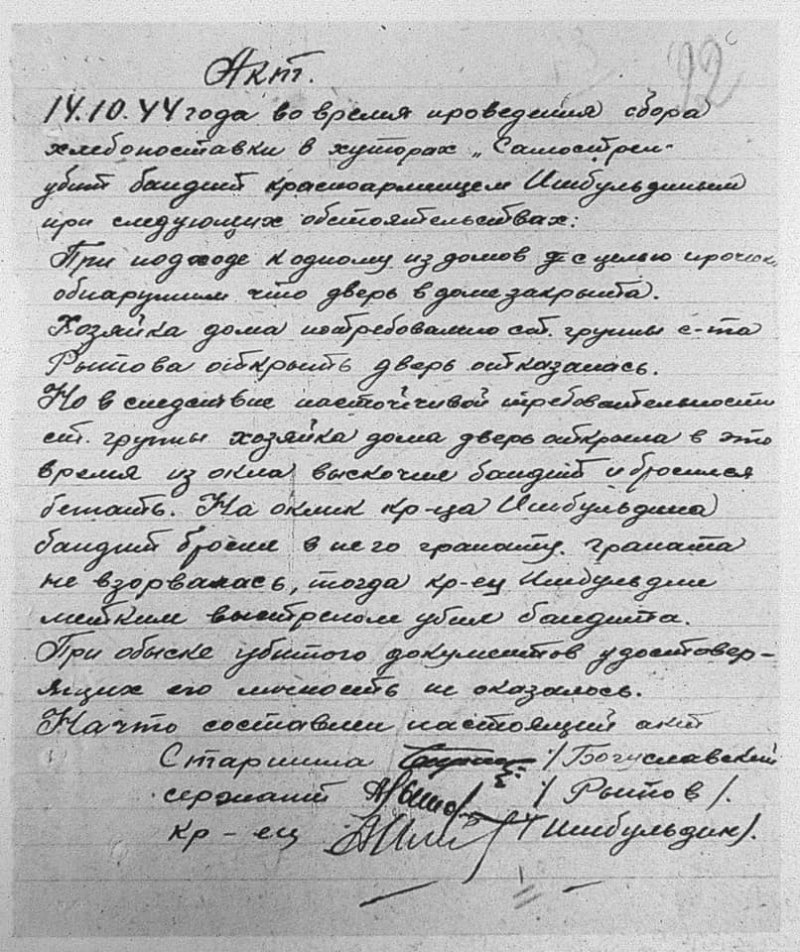 92
Акт.
14.10.44 года во время проведения сбора
хлебопоставки в хуторах „Самострел"
убит бандит красноармейцем Ишбульдиным
при следующих обстоятельствах:
При подходе к одному из домов с целью
обнаружили что дверь в доме закрыта.
Хозяйка дома потребованию ст. группы с-та
Рытова открыть дверь отказалась.
Но в следствие настойчивой требовательности
ст. группы хозяйка дома дверь открыла в это
время из окна выскочил бандит и бросился
бежать. На оклик кр-ца Ишбульдина
бандит бросил в него гранату. Граната
не взорвалась, тогда кр-ец Ишбульдин
метким выстрелом убил бандита.
При обыске убитого документов удостовер-
ящих его личность не оказалось.
На что составлен настоящий акт
Старшина /Богуславский
сержант /Рытов/.
кр-ец /Ишбульдин/.